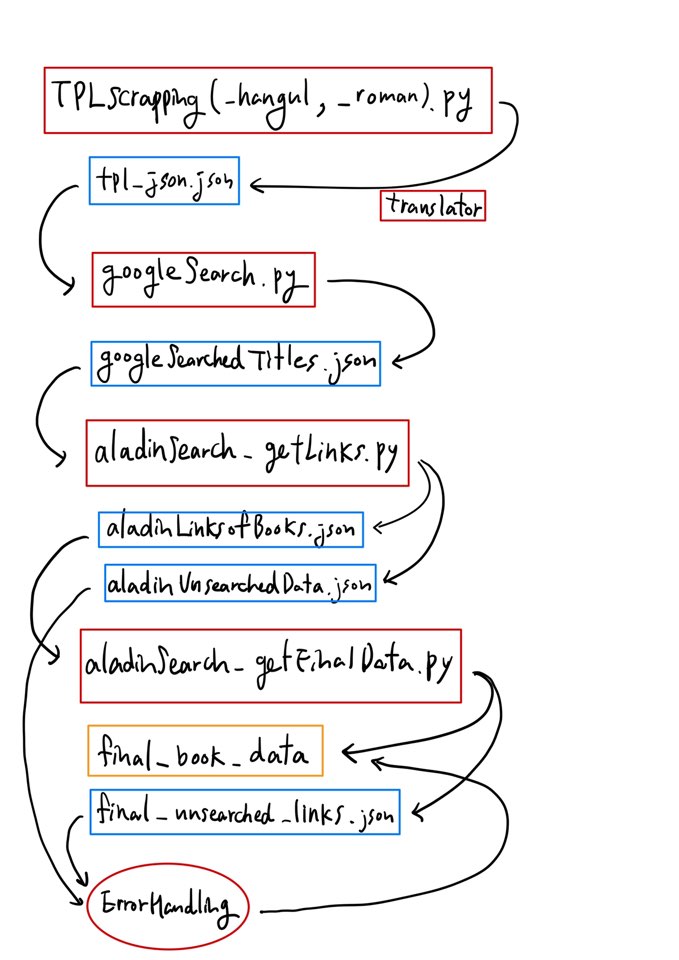 TPLscrapping (_hangul, _roman).py
tpl_json.json
translator
googleSearch.py
googleSearchedTitles.json
aladinSearch_getLinks.py
aladinLinksofBooks.json
aladinUnsearchedData.json
aladinSearch_getFinalData.py
final_book_data
final_unsearched_links.json
ErrorHandling